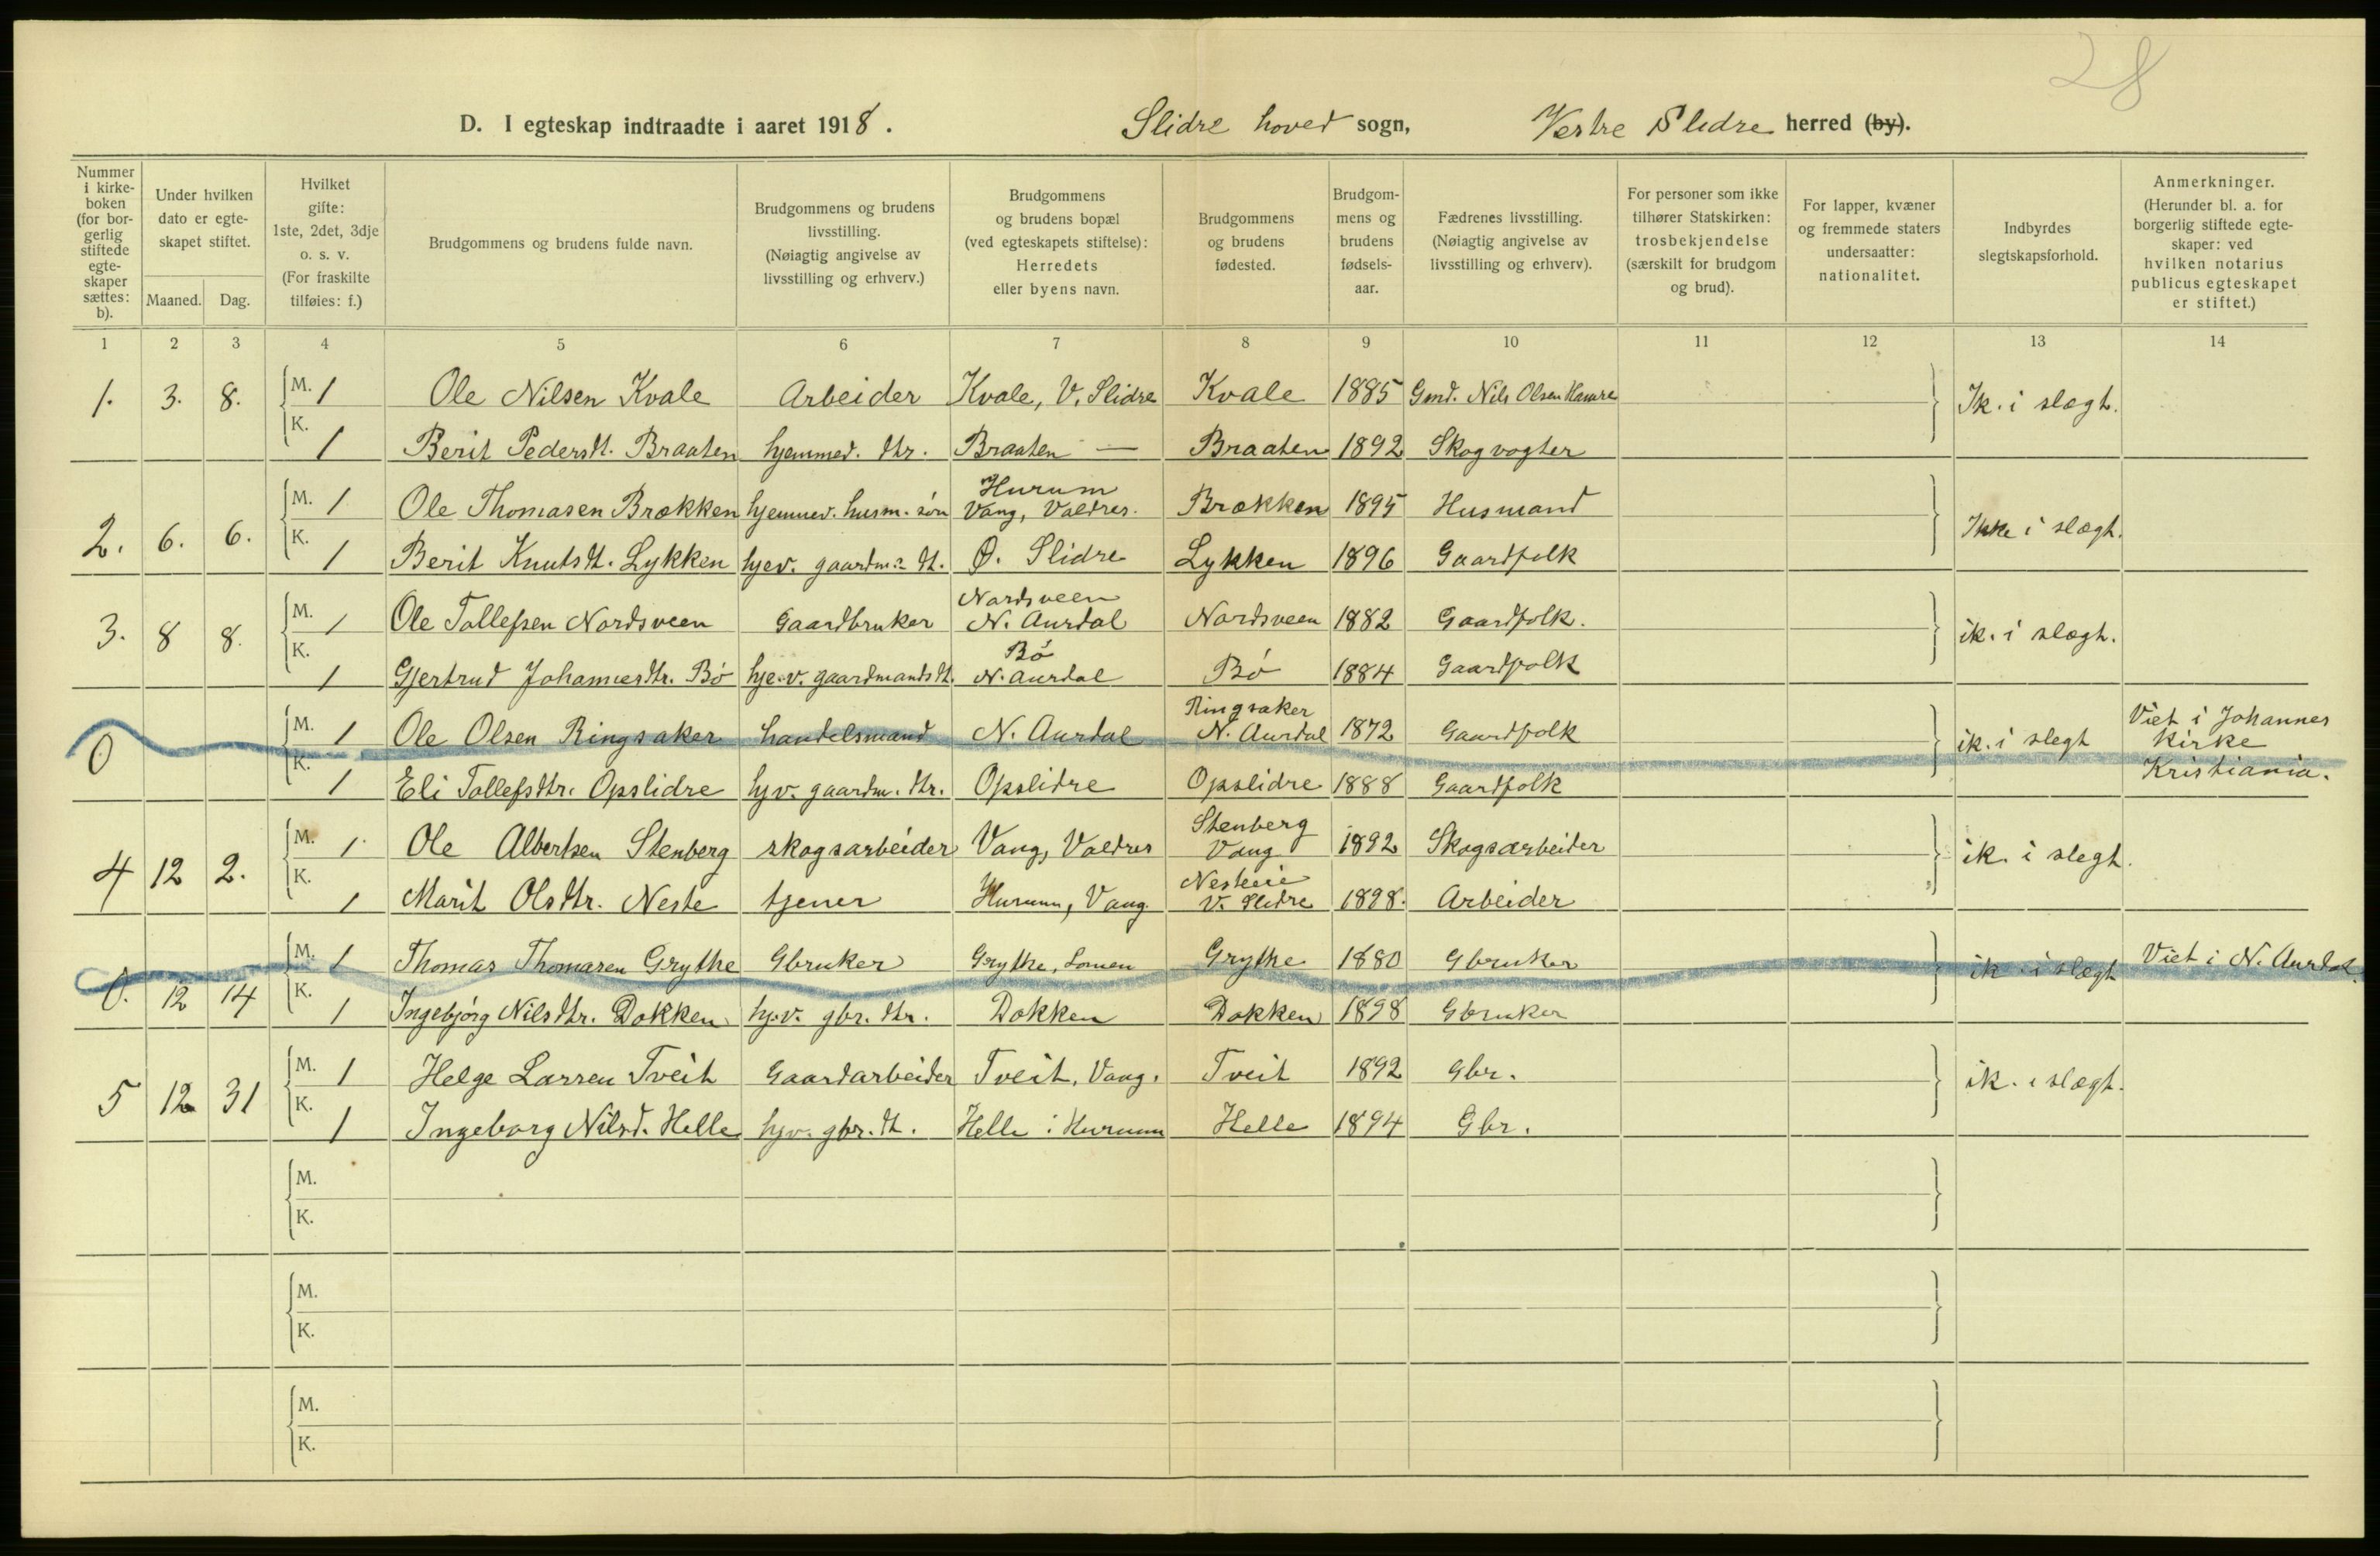 28
D. I egteskap indtraadte i aaret 1918. Slidre hoved sogn, Vestre Slidre herred (by).
Nummer i kirkeboken (for borgerlig stiftede egteskaper sættes: b).
Under hvilken dato er egteskapet stiftet.
Maaned. Dag.
Hvilket gifte: 1ste, 2det, 3dje o. s. v. (For fraskilte tilføies: f.)
Brudgommens og brudens fulde navn.
Brudgommens og brudens livsstilling. (Nøiagtig angivelse av livsstilling og erhverv.)
Brudgommens og brudens bopæl (ved egteskapets stiftelse): Herredets eller byens navn.
Brudgommens og brudens fødested.
Brudgommens og brudens fødselsaar.
Fædrenes livsstilling. (Nøiagtig angivelse av livsstilling og erhverv).
For personer som ikke tilhører Statskirken: trosbekjendelse (særskilt for brudgom og brud).
For lapper, kvæner og fremmede staters undersaatter: nationalitet.
Indbyrdes slegtskapsforhold.
Anmerkninger. (Herunder bl. a. for borgerlig stiftede egteskaper: ved hvilken notarius publicus egteskapet er stiftet.)
1 2 3 4 5 6 7 8 9 10 11 12 13 14
1. 3. 8. M. 1 Ole Nilsen Kvale Arbeider Kvale, V. Slidre Kvale 1885 Gmd. Nils Olsen Hamre Ik. i slægt.
K. 1 Berit Pedersdt. Braaten hjemmev. dtr. Braaten — Braaten 1892 Skogvogter
2. 6. 6. M. 1 Ole Thomasen Brækken hjemmev. husm. søn Hurum Vang, Valdres. Brækken 1895 Husmand Ikke i slægt.
K. 1 Berit Knutsdt. Lykken hjev. gaardm. dt. Ø. Slidre Lykken 1896 Gaardfolk
3. 8 8. M. 1 Ole Tollefsen Nordsveen Gaardbruker Nordsveen N. Aurdal Nordsveen 1882 Gaardfolk. ik. i slægt.
K. 1 Gjertrud Johannesdtr. Bø hje.v. gaardmandsdt. Bø N. Aurdal Bø 1884 Gaardfolk
0 M. 1 Ole Olsen Ringsaker handelsmand N. Aurdal Ringsaker N. Aurdal 1872 Gaardfolk ik. i slegt Viet i Johannes Kirke Kristiania.
K. 1 Eli Tollefsdtr. Opslidre hjv. gaardm. dtr. Opslidre Opslidre 1888 Gaardfolk
4 12 2. M. 1 Ole Albertsen Stenberg skogsarbeider Vang, Valdres Stenberg Vang 1892 Skogsarbeider ik. i slegt.
K. 1 Marit Olsdtr. Neste tjener Hurum, Vang. Nesteeie V. Slidre 1898. Arbeider
0. 12 14 M. 1 Thomas Thomasen Grythe Gbruker Grythe, Lomen Grythe 1880 Gbruker ik. i slægt Viet i N. Aurdal.
K. 1 Ingebjørg Nilsdtr. Dokken hj.v. gbr. dtr. Dokken Dokken 1898 Gbruker
5 12 31 M. 1 Helge Larsen Tveit Gaardarbeider Tveit, Vang. Tveit 1892 Gbr. ik. i slægt.
K. 1 Ingeborg Nilsd. Helle hjv. gbr. dt. Helle i Hurum Helle 1894 Gbr.
M.
K.
M.
K.
M.
K.